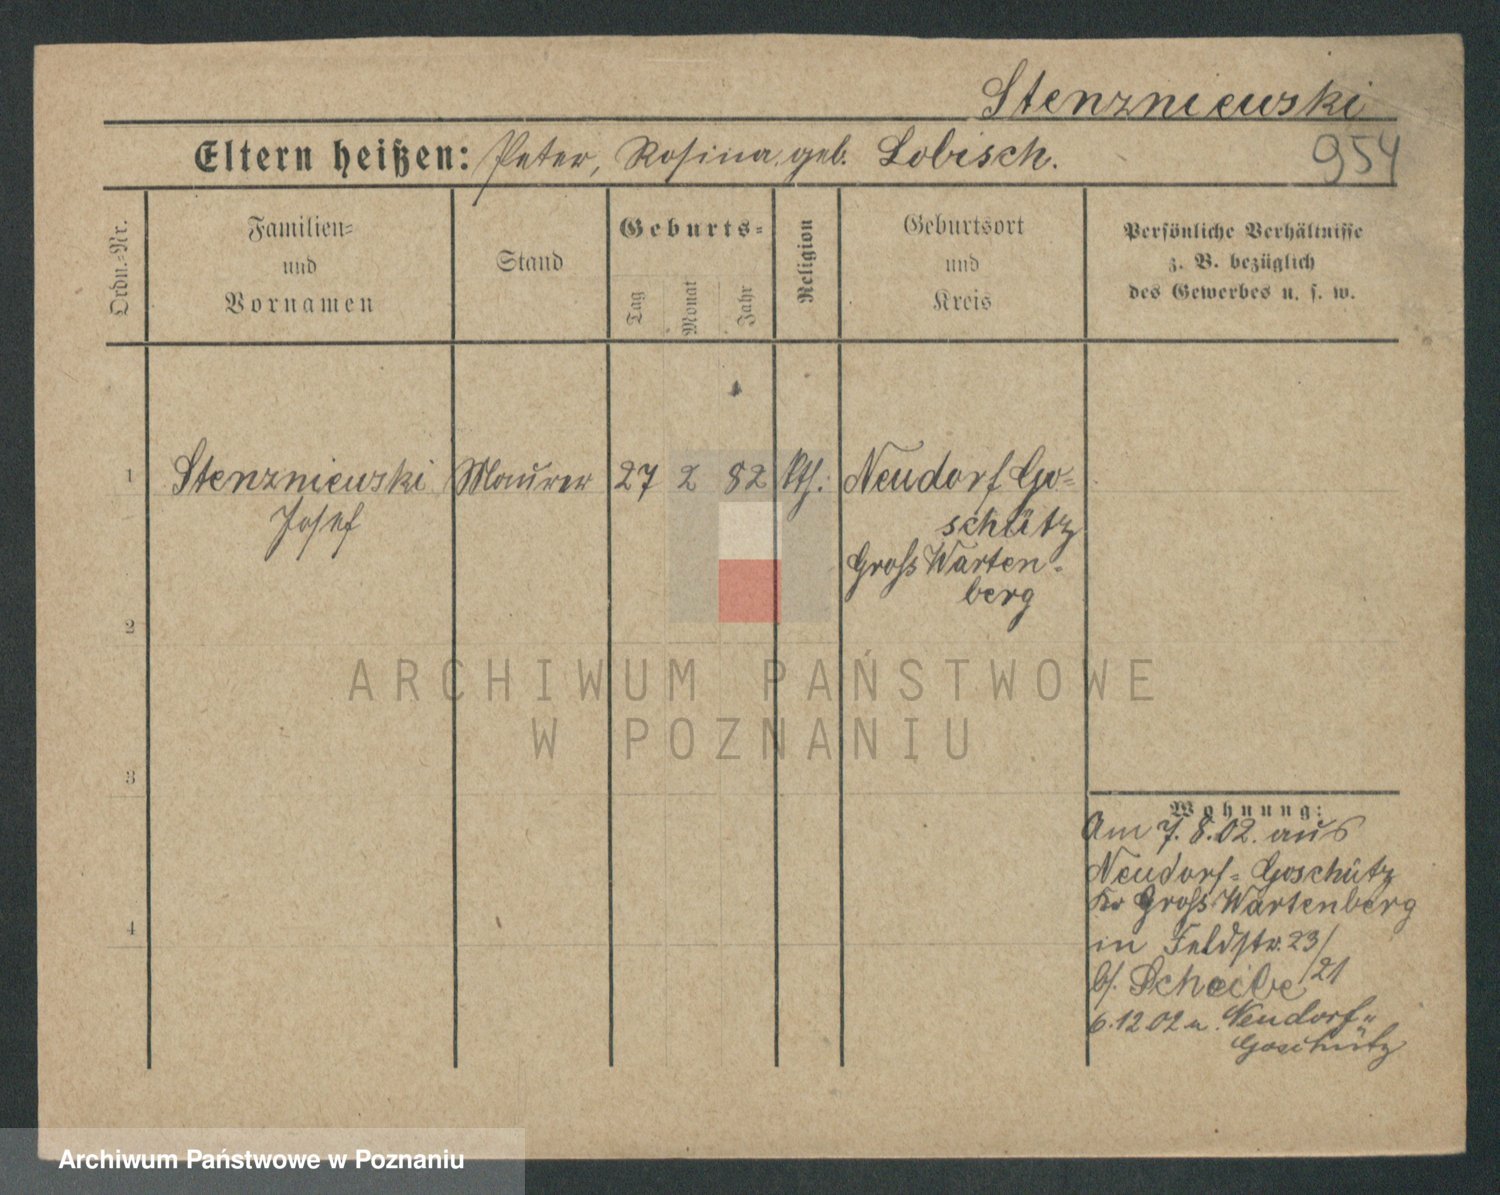 Stenzniewski
Eltern heißen: Peter, Rosina, geb. Lobisch.
954
Ordn.-Nr.
Familien-
und
Vornamen
Stand
Geburts-
Tag
Monat
Jahr
Religion
Geburtsort
und
Kreis
Persönliche Verhältnisse
z. B. bezüglich
des Gewerbes u. s. w.
1
Stenzniewski
Josef
Maurer
27
2
82
kth.
Neudorf Go-
schütz
Gross Warten-
berg
2
3
4
Wohnung:
Am 7.8.02. aus
Neudorf-Goschütz
Kr Gross Wartenberg
in Feldstr. 23/
21
b/. Scheibe
6.12 02 n. Neudorf-
Goschütz
ARCHIWUM PAŃSTWOWE
W POZNANIU
Archiwum Państwowe w Poznaniu